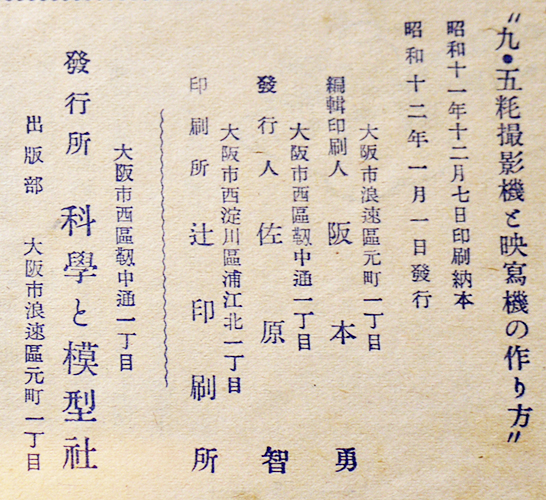 〝九・五粍撮影機と映寫機の作り方〟
昭和十一年十二月七日印刷納本
昭和十二年一月一日發行
大阪市浪速區元町一丁目
編輯印刷人 阪本勇
大阪市西區靱中通一丁目
發行人 佐原智
大阪市西淀川區浦江北一丁目
印刷所 辻印刷所
大阪市西區靱中通一丁目
發行所 科學と模型社
出版部 大阪市浪速區元町一丁目